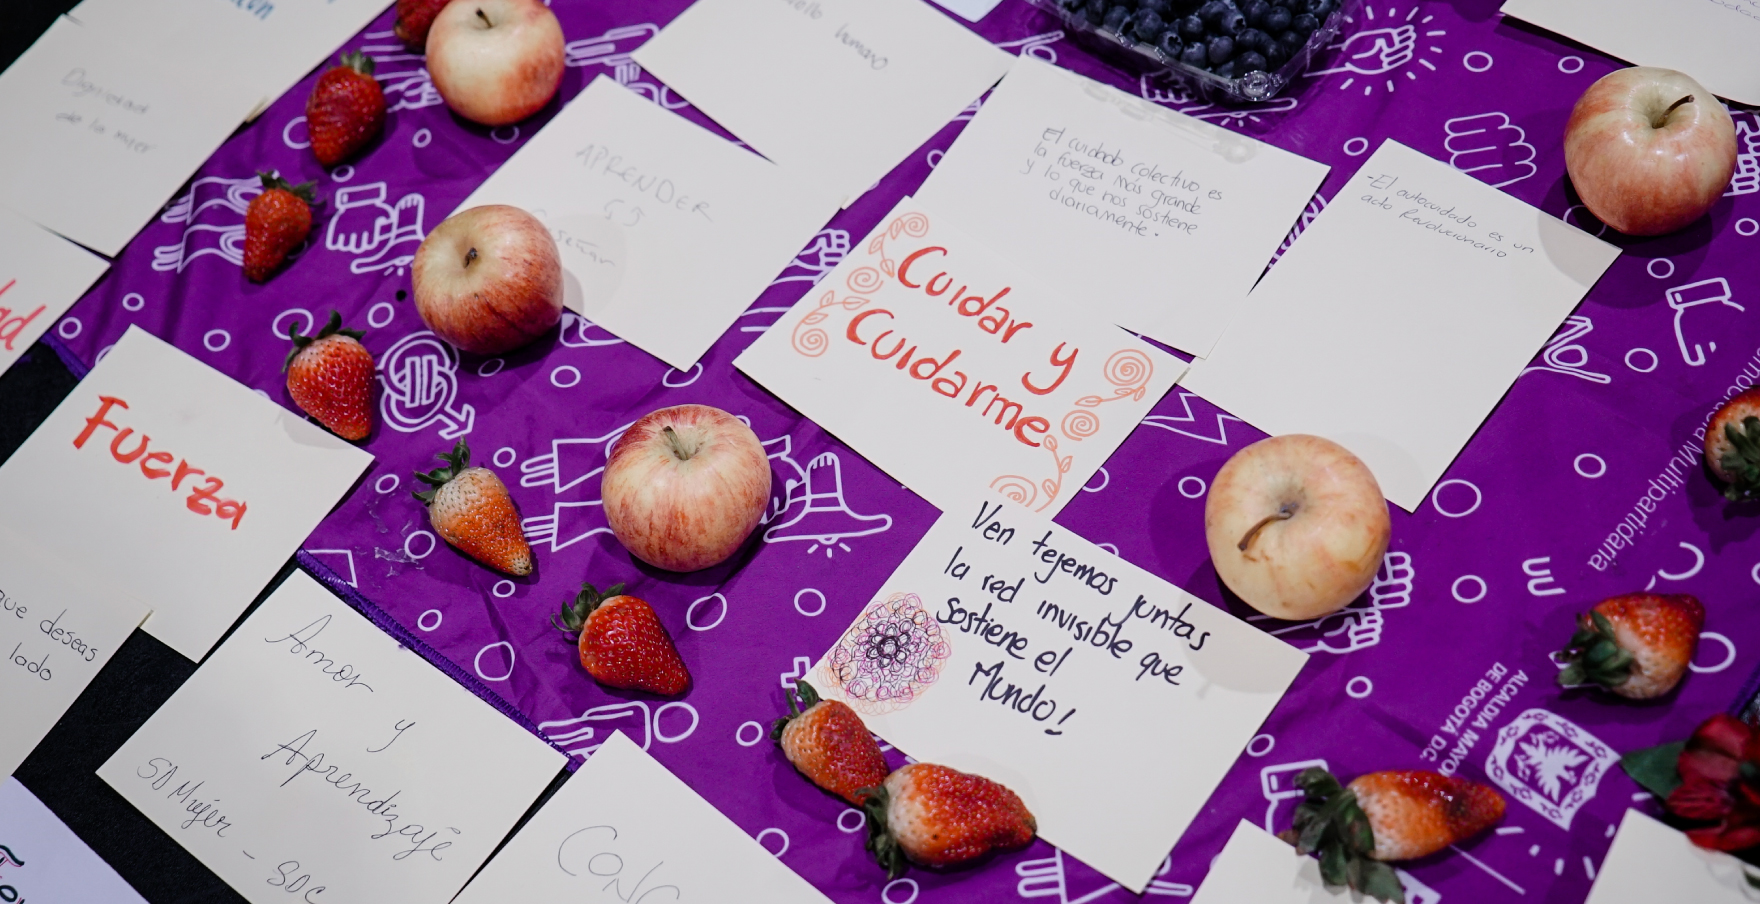 Dignidad
de la mujer
humano
APRENDER
El cuidado colectivo es
la fuerza más grande
y lo que nos sostiene
diariamente.
-El autocuidado es un
acto Revolucionario
Cuidar y
Cuidarme
Fuerza
que deseas
lado
Ven tejemos juntas
la red invisible que
Sostiene el
Mundo!
Amor
y
Aprendizaje
SDMujer - SDC
Multipartidaria
ALCALDÍA MAYOR
DE BOGOTÁ D.C.